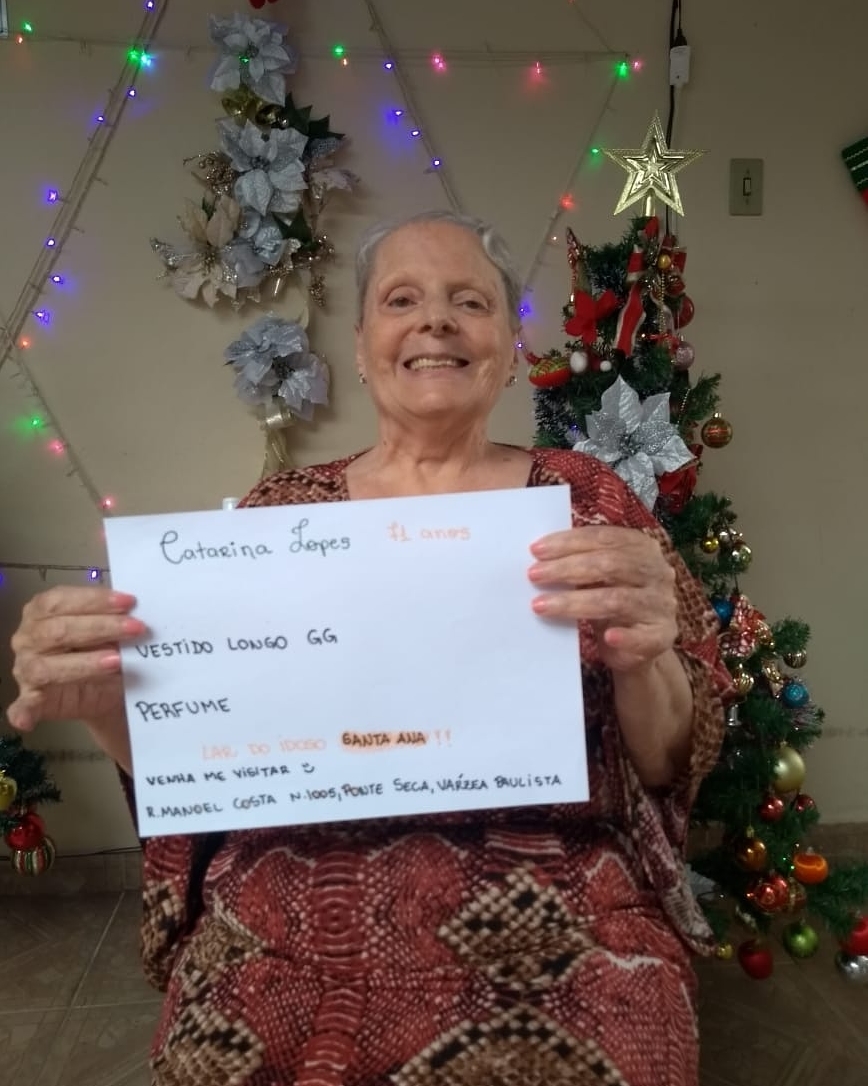 Catarina Lopes 71 anos
VESTIDO LONGO GG
PERFUME
LAR DO IDOSO SANTA ANA !!
VENHA ME VISITAR
R. MANOEL COSTA N. 1005, PONTE SECA, VARZEA PAULISTA